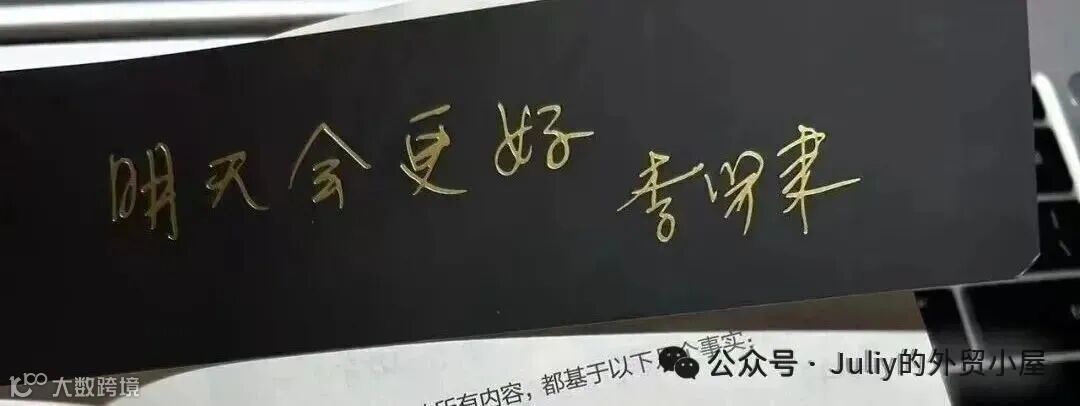 明天会更好
李
所有内容，都基于以下
个事实：
公众号 · Juliy的外贸小屋
大数跨境